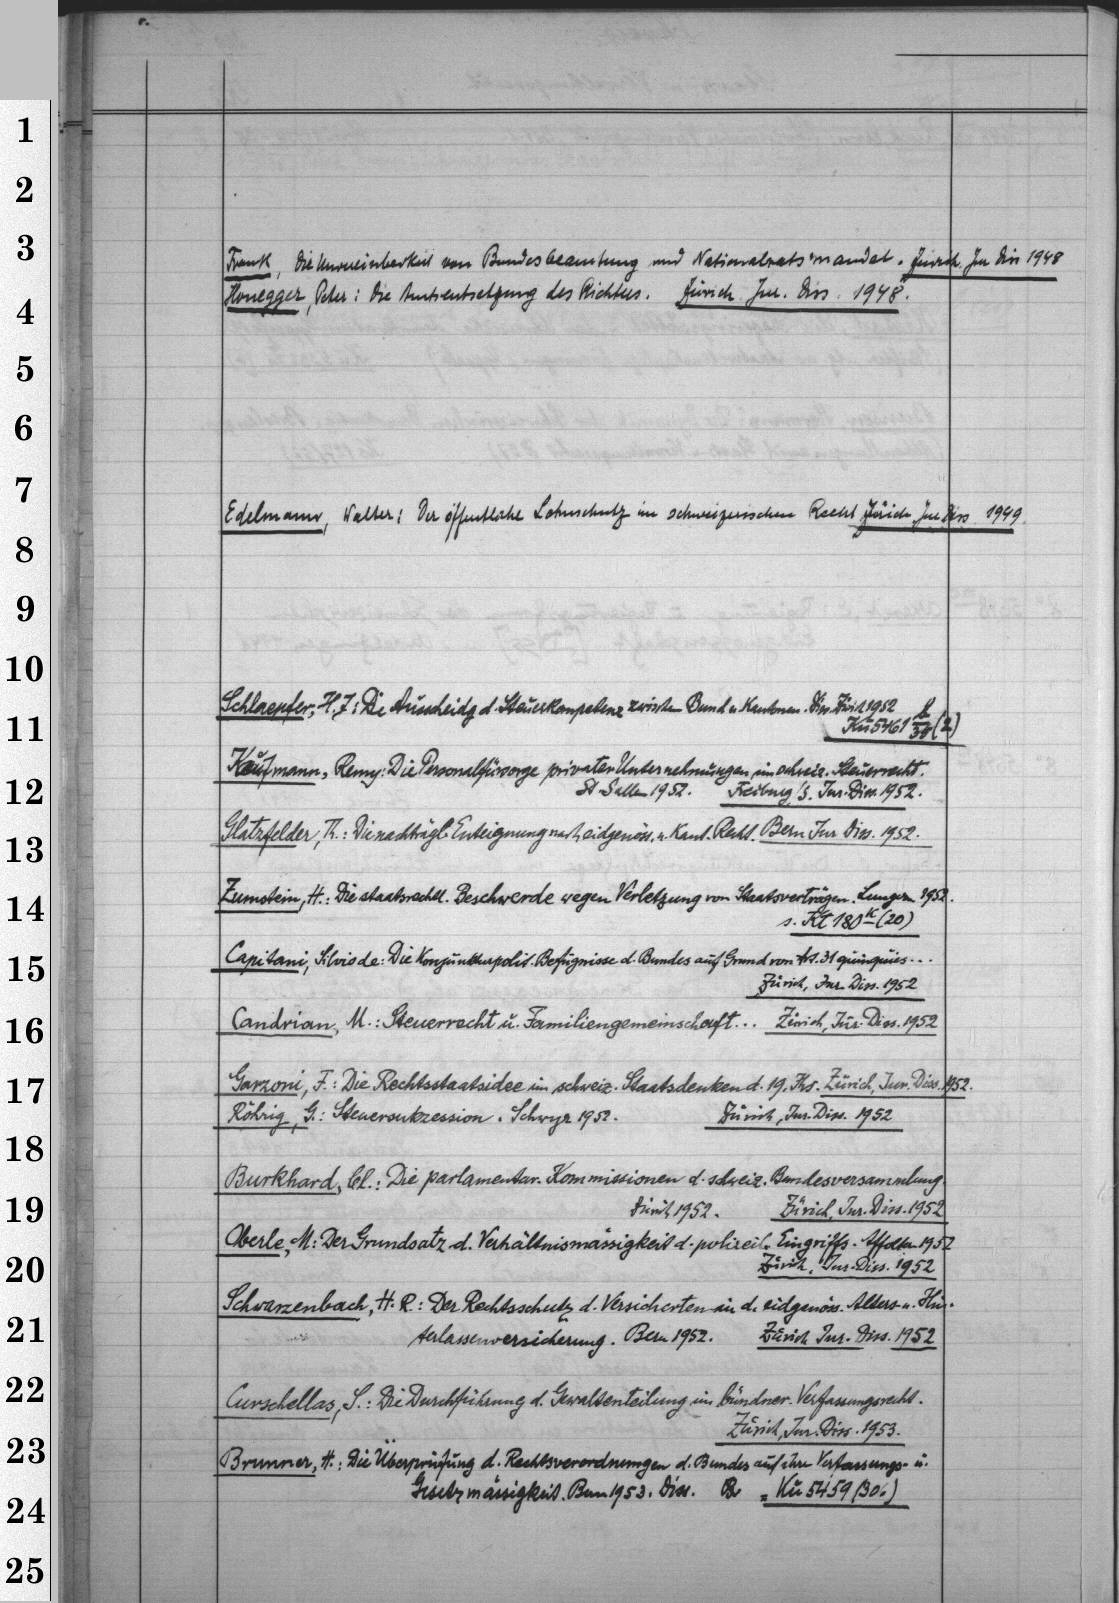 1
2
3
Frank, Die Unvereinbarkeit von Bundesbeamtung und Nationalratsmandat. Zürich. Jur Diss 1948
Honegger, Peter: Die Amtsentsetzung des Richters. Zürich. Jur. Diss. 1948.
4
5
6
7
Edelmann, Walter: Der öffentliche Lohnschutz im schweizerischen Recht Zürich Jur Diss 1949.
8
9
10
Schlaepfer, H. J: Die Ausscheidg d. Steuerkompetenz zwischen Bund u. Kantonen. Diss. Zürich 1952
11
Kü 5461 (2)
Kaufmann, Remy: Die Personalfürsorge privater Unternehmungen im schweiz. Steuerrecht.
12
St Gallen 1952. Freiburg /S. Jur. Diss. 1952.
Glatzfelder, Th.: Die nachträgl. Enteignung nach eidgenöss. u. Kant. Recht. Bern Jur Diss. 1952.
13
Zumstein, H.: Die staatsrechtl. Beschwerde wegen Verletzung von Staatsverträgen. Lungern 1952.
14
s. Kt 180 k (20)
Capitani, Silvio de: Die Konjunkturpolit. Befugnisse d. Bundes auf Grund von Art. 31 quinquies...
15
Zürich, Jur. Diss. 1952
Candrian, M.: Steuerrecht u. Familiengemeinschaft... Zürich, Jur. Diss. 1952
16
Garzoni, F.: Die Rechtsstaatsidee im schweiz. Staatsdenken d. 19. Jhs. Zürich, Jur. Diss. 1952.
17
Röhrig, G.: Steuersukzession. Schwyz 1952. Zürich, Jur. Diss. 1952
18
Burkhard, Cl.: Die parlamentar. Kommissionen d. schweiz. Bundesversammlung.
19
Zürich 1952. Zürich, Jur. Diss. 1952
Oberle, M: Der Grundsatz d. Verhältnismässigkeit d. polizeil. Eingriffs. Affoltern 1952
20
Zürich, Jur. Diss. 1952
Schwarzenbach, H. R.: Der Rechtsschutz d. Versicherten in d. eidgenöss. Alters- u. Hin-
21
terlassenversicherung. Bern 1952. Zürich Jur. Diss. 1952
22
Curschellas, S.: Die Durchführung d. Gewaltenteilung im bündner. Verfassungsrecht.
Zürich, Jur. Diss. 1953.
23
Brunner, H.: Die Überprüfung d. Rechtsverordnungen d. Bundes auf ihre Verfassungs- u.
24
Gesetzmässigkeit. Bern 1953. Diss. Kü 5459 (30)
25